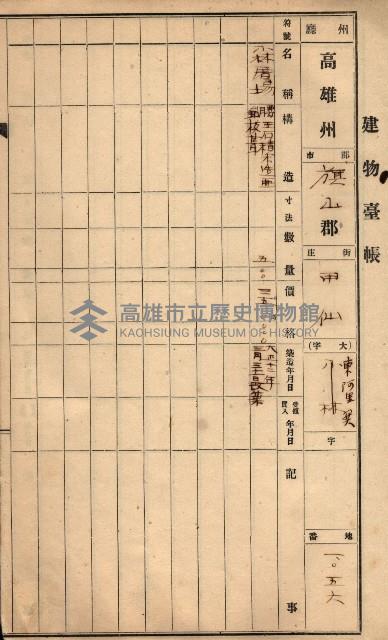 建物臺帳
州廳 高雄州
郡市 旗山郡
街庄 甲仙
大字(字) 東阿里関
小林
字
地番 一〇五六
符號
名稱
構造
寸法
數量
價格
築造年月日
營繕買入年月日
記事
小林屠場
五〇〇
大正十二年
三月三十一日
高雄市立歷史博物館
KAOHSIUNG MUSEUM OF HISTORY